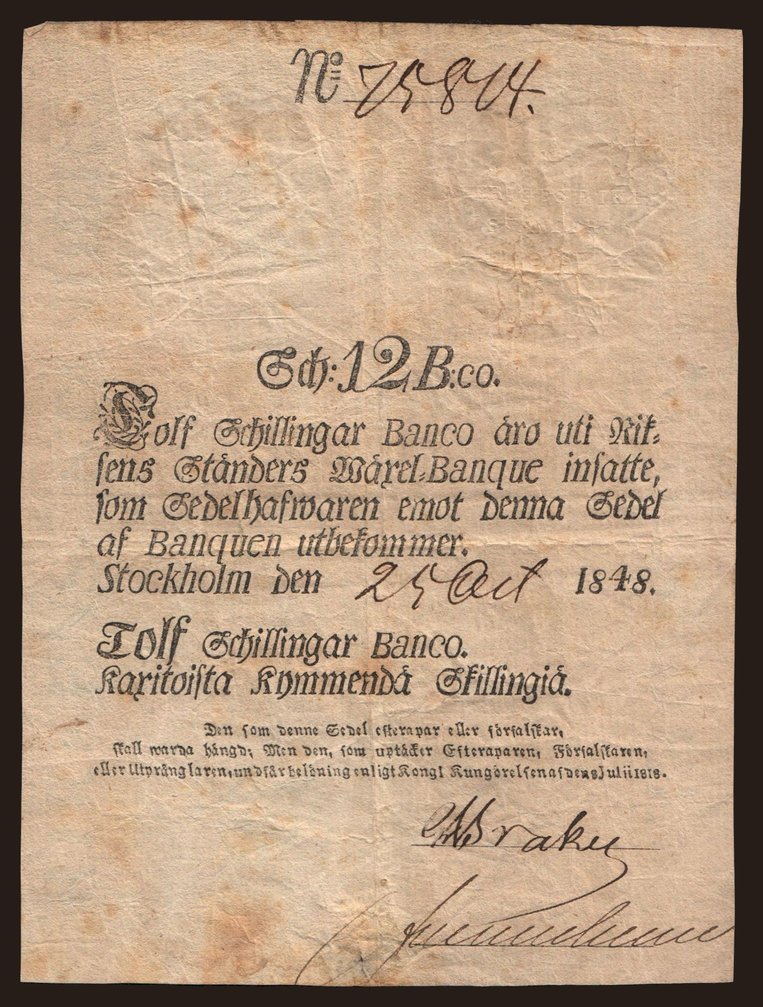 No 75814.
Sch: 12 B:co.
Tolf Schillingar Banco äro uti Rik-
sens Ständers Wäxel-Banque insatte,
som Sedelhafwaren emot denna Sedel
af Banquen utbekommer.
Stockholm den 25 Oct 1848.
Tolf Schillingar Banco.
Kaxitoista Kymmendä Skillingiä.
Den som denne Sedel efterapar eller förfalskar,
skall warda hängd; Men den, som uptäcker Efteraparen, Förfalskaren,
eller Utprånglaren, undfår belöning enligt Kongl Kungörelsen af den 8 Julii 1818.